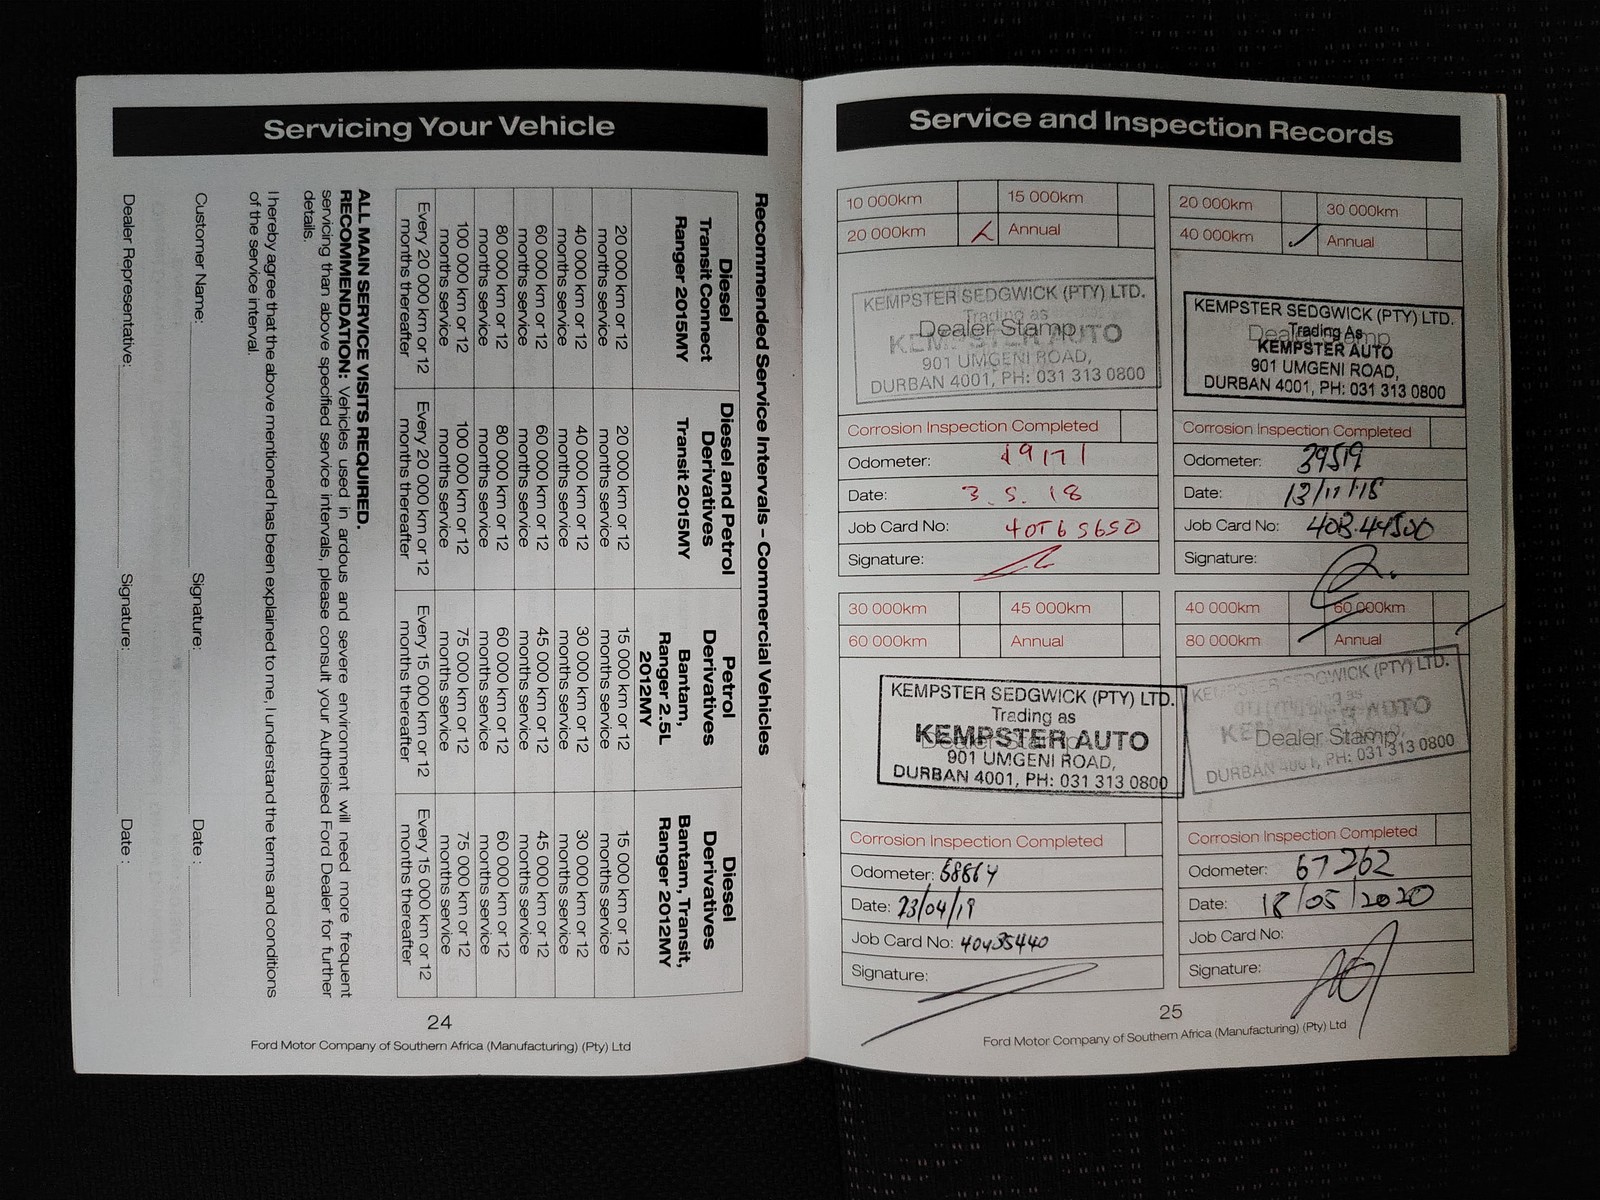 Servicing Your Vehicle
Recommended Service Intervals - Commercial Vehicles
Diesel
Transit Connect
Ranger 2015MY
Diesel and Petrol
Derivatives
Transit 2015MY
Petrol
Derivatives
Bantam,
Ranger 2.5L
2012MY
Diesel
Derivatives
Bantam, Transit,
Ranger 2012MY
20 000 km or 12
months service
20 000 km or 12
months service
15 000 km or 12
months service
15 000 km or 12
months service
40 000 km or 12
months service
40 000 km or 12
months service
30 000 km or 12
months service
30 000 km or 12
months service
60 000 km or 12
months service
60 000 km or 12
months service
45 000 km or 12
months service
45 000 km or 12
months service
80 000 km or 12
months service
80 000 km or 12
months service
60 000 km or 12
months service
60 000 km or 12
months service
100 000 km or 12
months service
100 000 km or 12
months service
75 000 km or 12
months service
75 000 km or 12
months service
Every 20 000 km or 12
months thereafter
Every 20 000 km or 12
months thereafter
Every 15 000 km or 12
months thereafter
Every 15 000 km or 12
months thereafter
ALL MAIN SERVICE VISITS REQUIRED.
RECOMMENDATION: Vehicles used in ardous and severe environment will need more frequent
servicing than above specified service intervals, please consult your Authorised Ford Dealer for further
details.
I hereby agree that the above mentioned has been explained to me, I understand the terms and conditions
of the service interval.
Customer Name: Signature: Date :
Dealer Representative: Signature: Date :
24
Ford Motor Company of Southern Africa (Manufacturing) (Pty) Ltd
Service and Inspection Records
10 000km 15 000km
20 000km Annual
KEMPSTER SEDGWICK (PTY) LTD.
Trading as
Dealer Stamp
KEMPSTER AUTO
901 UMGENI ROAD,
DURBAN 4001, PH: 031 313 0800
Corrosion Inspection Completed
Odometer: 19171
Date: 3. 5. 18
Job Card No: 40T65650
Signature:
20 000km 30 000km
40 000km Annual
KEMPSTER SEDGWICK (PTY) LTD.
Trading As
Dealer Stamp
KEMPSTER AUTO
901 UMGENI ROAD,
DURBAN 4001, PH: 031 313 0800
Corrosion Inspection Completed
Odometer: 39519
Date: 13/11/18
Job Card No:
Signature:
30 000km 45 000km
60 000km Annual
KEMPSTER SEDGWICK (PTY) LTD.
Trading as
KEMPSTER AUTO
Dealer Stamp
901 UMGENI ROAD,
DURBAN 4001, PH: 031 313 0800
Corrosion Inspection Completed
Odometer:
Date: 23/04/19
Job Card No: 40435440
Signature:
40 000km 60 000km
80 000km Annual
KEMPSTER SEDGWICK (PTY) LTD.
KEMPSTER AUTO
Dealer Stamp
DURBAN 4001, PH: 031 313 0800
Corrosion Inspection Completed
Odometer: 67262
Date: 18/05/2020
Job Card No:
Signature:
25
Ford Motor Company of Southern Africa (Manufacturing) (Pty) Ltd